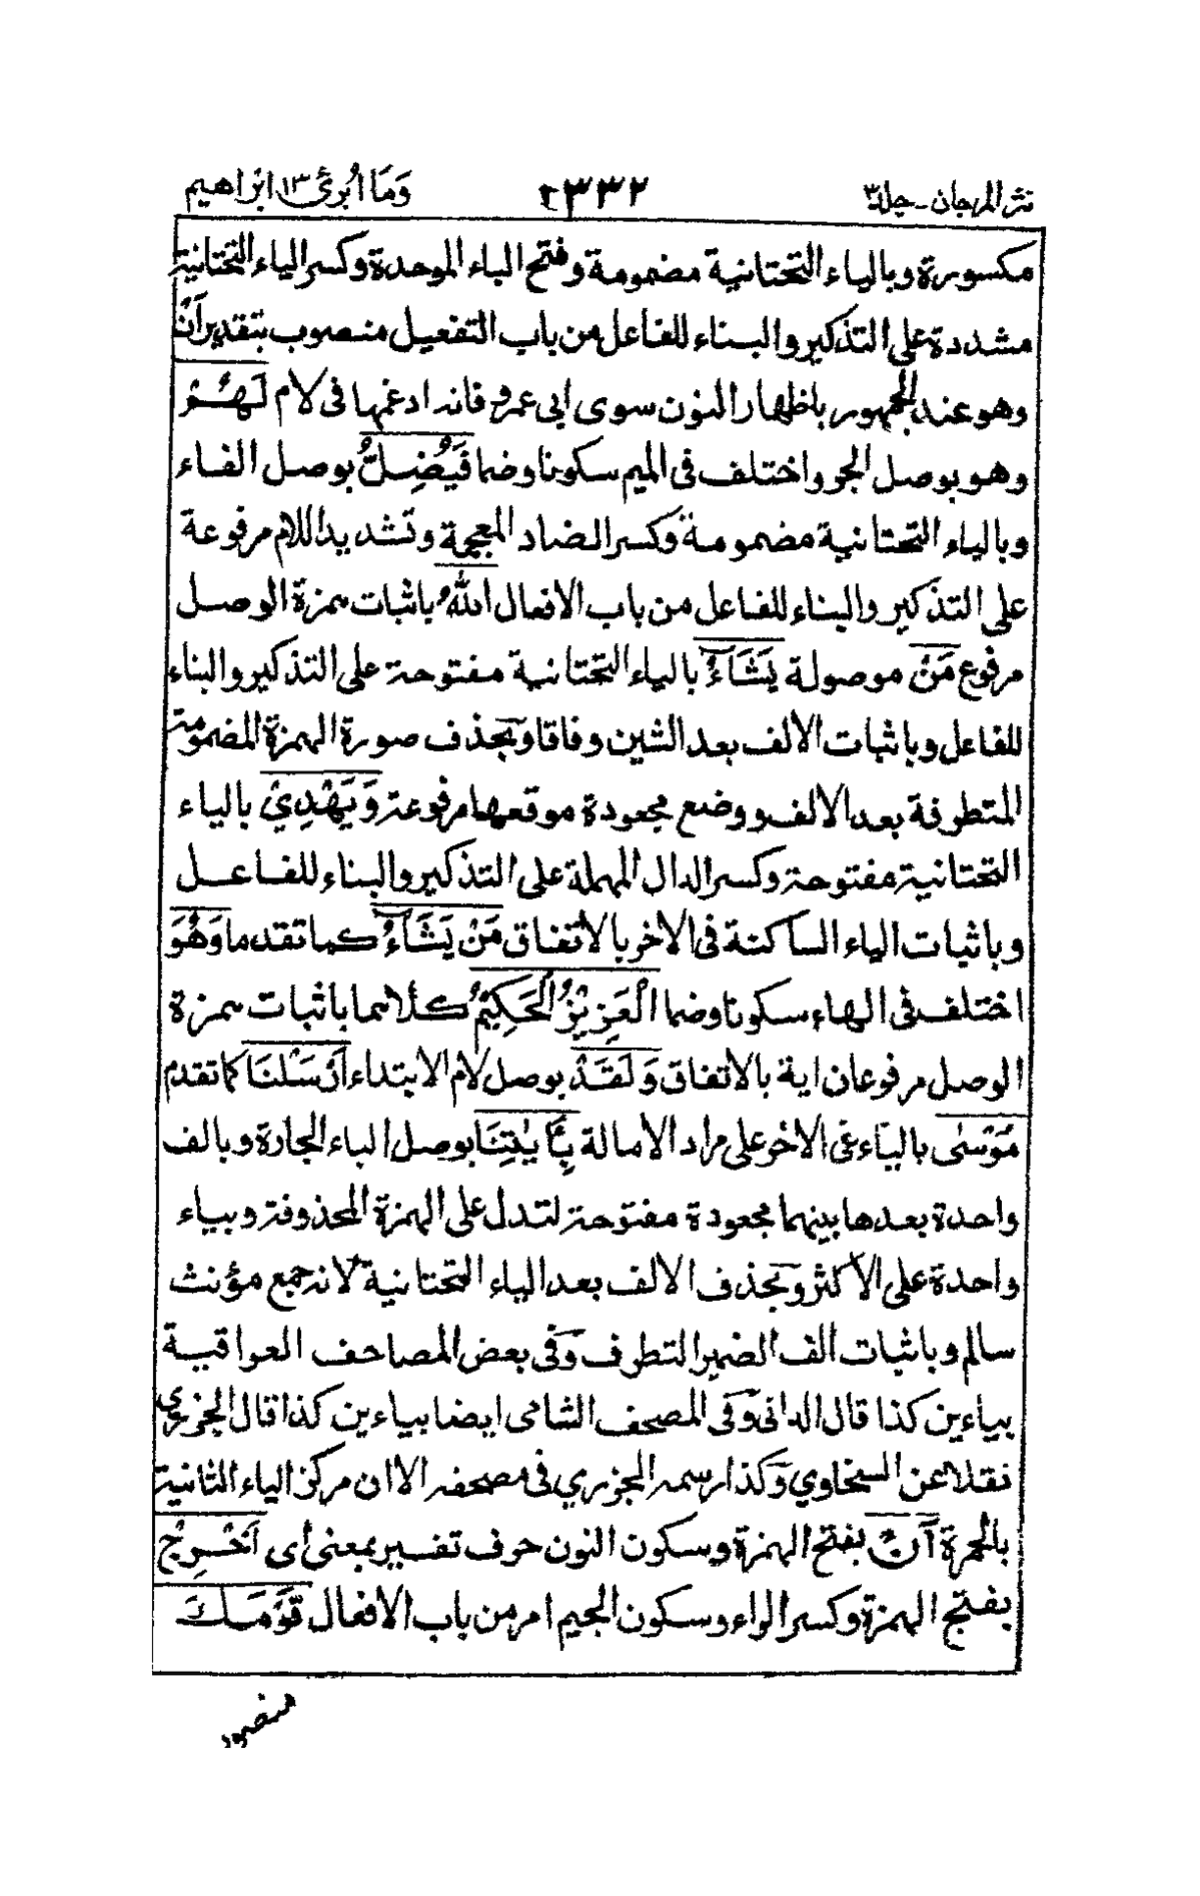 نثر المرجان - جلد٣
٢٣٣٢
وَمَا أُبَرِّئُ ١٣ ابراهيم
مكسورة وبالياء التحتانية مضمومة وفتح الباء الموحدة وكسر الياء التحتانية
مشددة على التذكير والبناء للفاعل من باب التفعيل منصوب بتقدير أَنْ
وهو عند الجمهور باظهار النون سوى ابى عمرو فانه ادغمها فى لام لَهُمْ
وهو بوصل الجر واختلف فى الميم سكونا وضما فَيُضِلُّ بوصل الفاء
وبالياء التحتانية مضمومة وكسر الضاد المعجمة وتشديد اللام مرفوعة
على التذكير والبناء للفاعل من باب الافعال اللهُ باثبات همزة الوصل
مرفوع مَنْ موصولة يَشَآءُ بالياء التحتانية مفتوحة على التذكير والبناء
للفاعل وباثبات الالف بعد الشين وفاقا وبحذف صورة الهمزة المضمومة
المتطرفة بعد الالف ووضع مجعودة موقعها مرفوعة وَيَهْدِيْ بالياء
التحتانية مفتوحة وكسر الدال المهملة على التذكير والبناء للفاعل
وباثبات الياء الساكنة فى الاخر بالاتفاق مَنْ يَشَآءُ كما تقدما وَهُوَ
اختلف فى الهاء سكونا وضما الْعَزِيْزُ الْحَكِيْمُ كلاهما باثبات همزة
الوصل مرفوعان اية بالاتفاق وَلَقَدْ بوصل لام الابتداء اَرْسَلْنَا كما تقدم
مُوْسٰى بالياء فى الاخر على مراد الامالة بِاٰيٰتِنَا بوصل الباء الجارة وبالف
واحدة بعدها بينهما مجعودة مفتوحة لتدل على الهمزة المحذوفة وبياء
واحدة على الاكثر وبحذف الالف بعد الياء التحتانية لانه جمع مؤنث
سالم وباثبات الف الضمير التطرف وفى بعض المصاحف العراقية
بياءين كذا قال الدانى وفى المصحف الشامى ايضا بياءين كذا قال الجزري
نقلا عن السخاوي وكذا رسمه الجزري فى مصحفه الا ان مركز الياء الثانية
بالحمرة اَنْ بفتح الهمزة وسكون النون حرف تفسير بمعنى أى اَخْرِجْ
بفتح الهمزة وكسر الراء وسكون الجيم امر من باب الافعال قَوْمَكَ